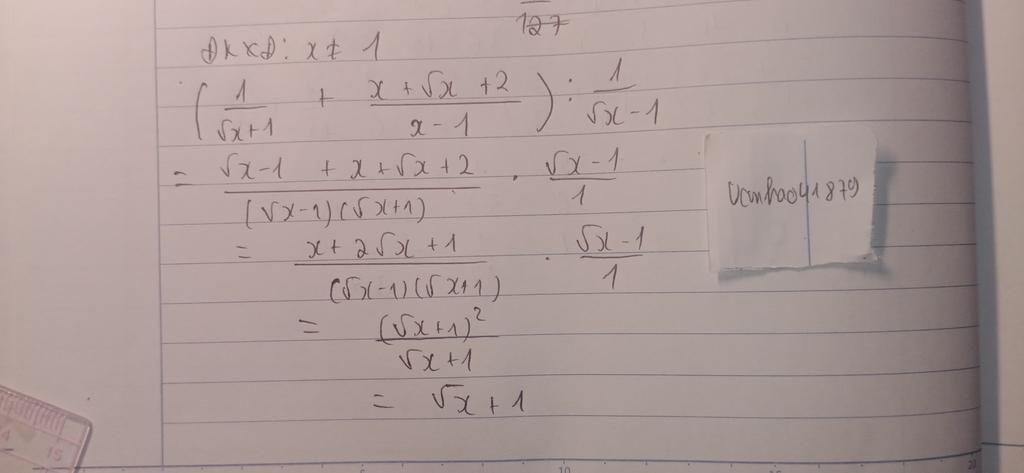 127
ĐKXĐ: x ≠ 1
( 1/(√x+1) + (x+√x+2)/(x-1) ) : 1/(√x-1)
= (√x-1 + x+√x+2)/((√x-1)(√x+1)) . (√x-1)/1
= (x+2√x+1)/((√x-1)(√x+1)) . (√x-1)/1
= (√x+1)²/(√x+1)
= √x+1
15
10
20